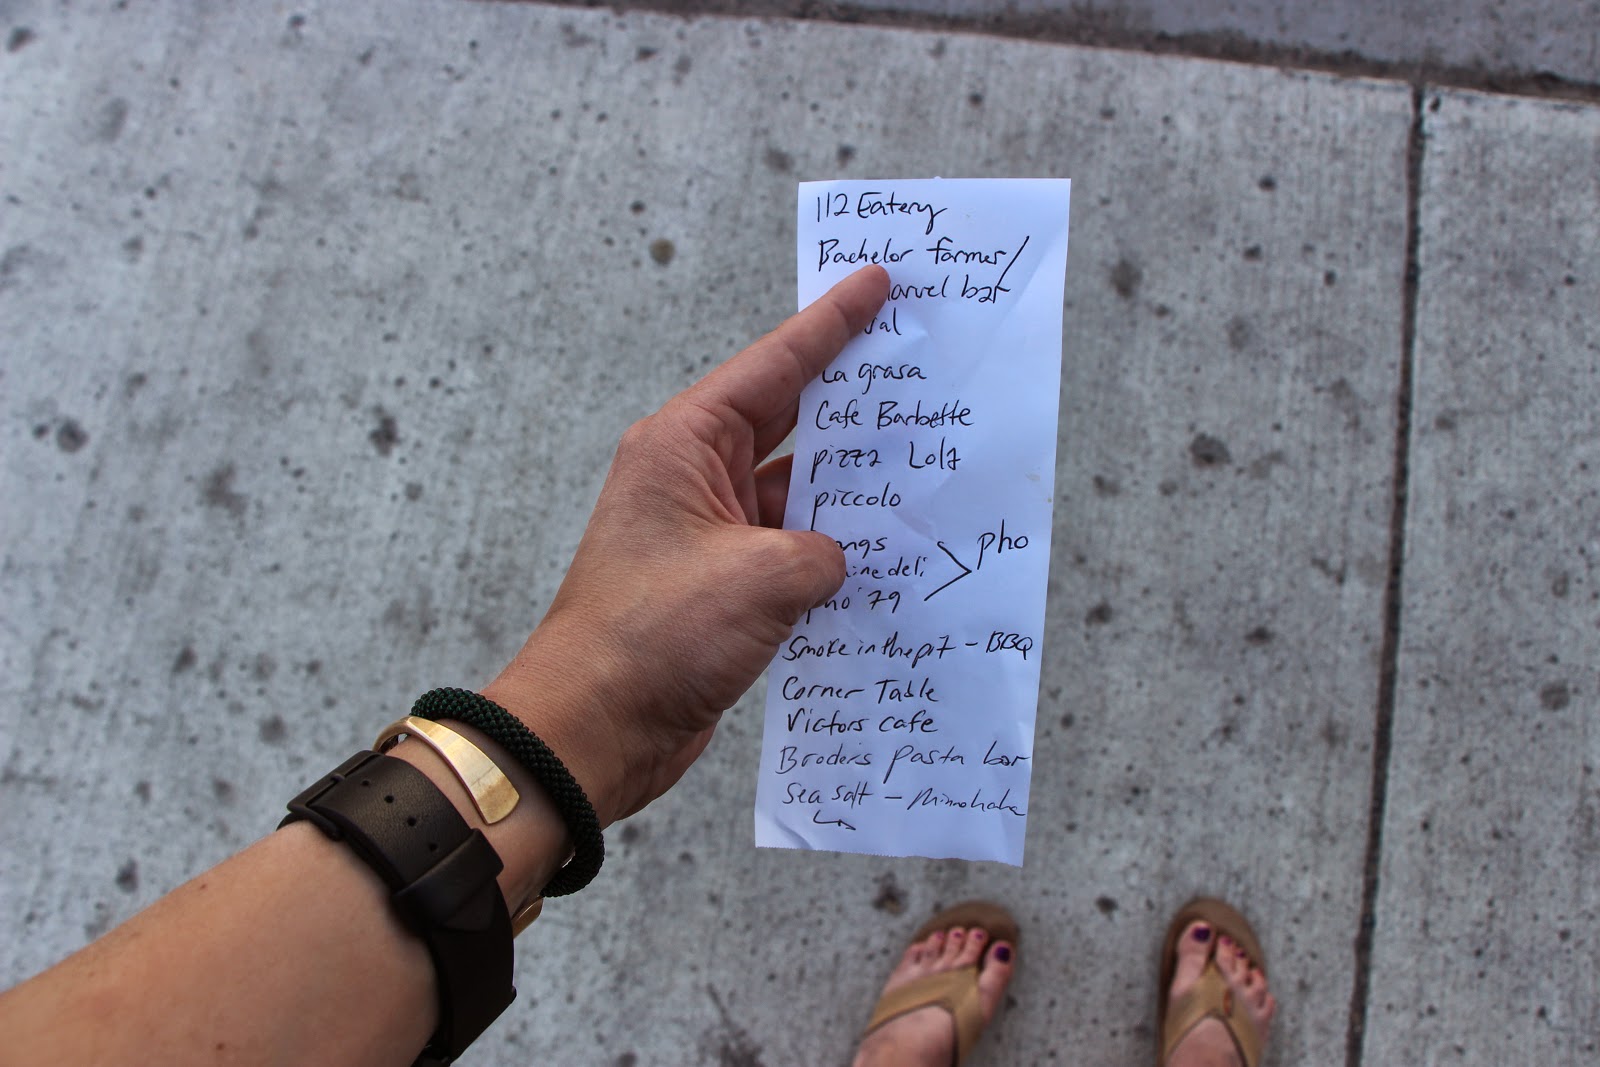 112 Eatery
Bachelor farmer/
arvel bar
val
La grasa
Cafe Barbette
pizza Lola
piccolo
ngs
ine deli
pho
pho '79
Smoke in the pit - BBQ
Corner Table
Victors cafe
Broders pasta bar
Sea salt - Minnehaha